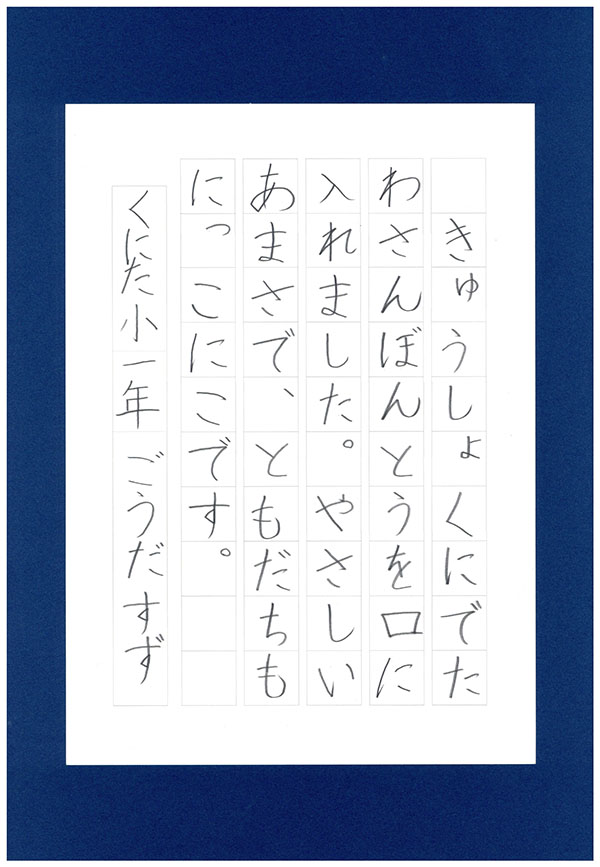 きゅうしょくにでた
わさんぼんとうを口に
入れました。やさしい
あまさで、ともだちも
にっこにこです。
くにた小一年 ごうだすず